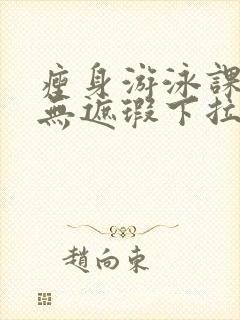 瘦身游泳課
無遮瑕下拉
趙向東